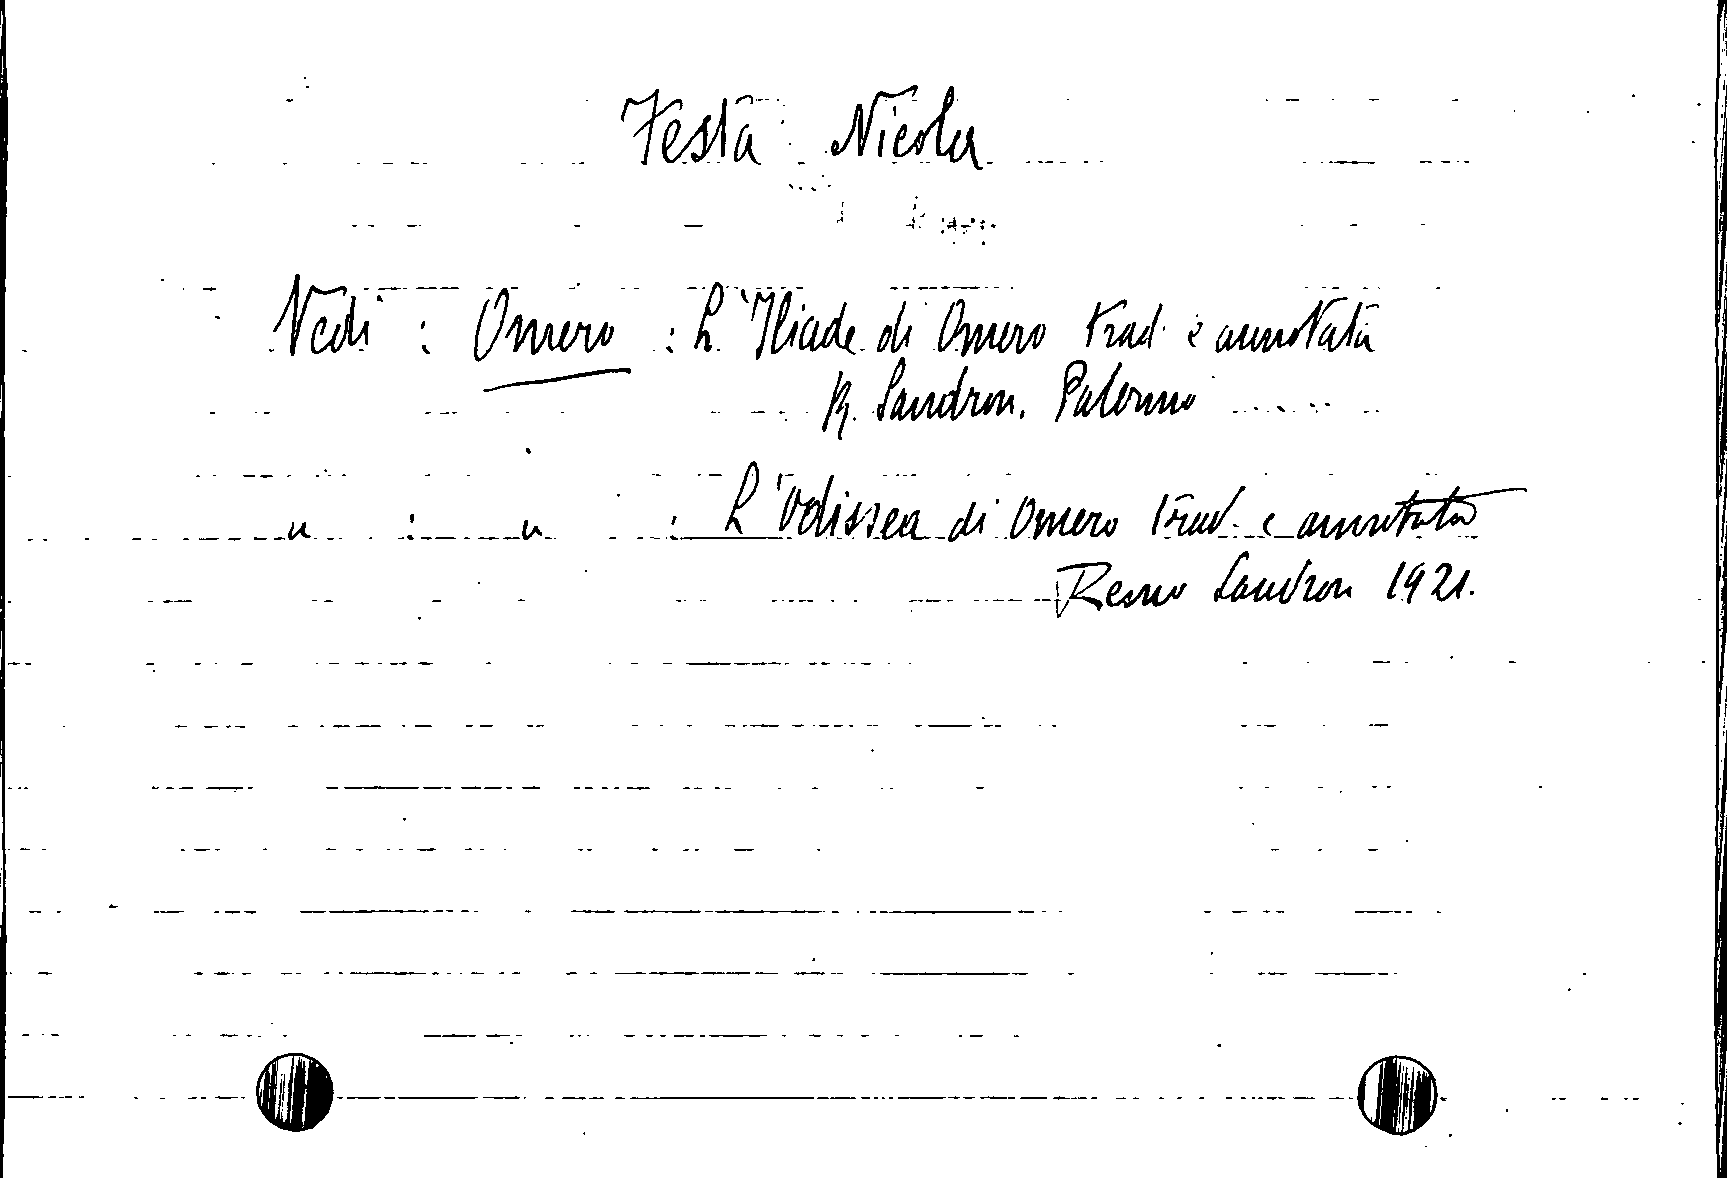 Festa Nicola
Vedi : Omero : L'Iliade di Omero trad. e annotata
R. Sandron. Palermo
" : " : L'Odissea di Omero trad. e annotata
Remo Sandron 1921.